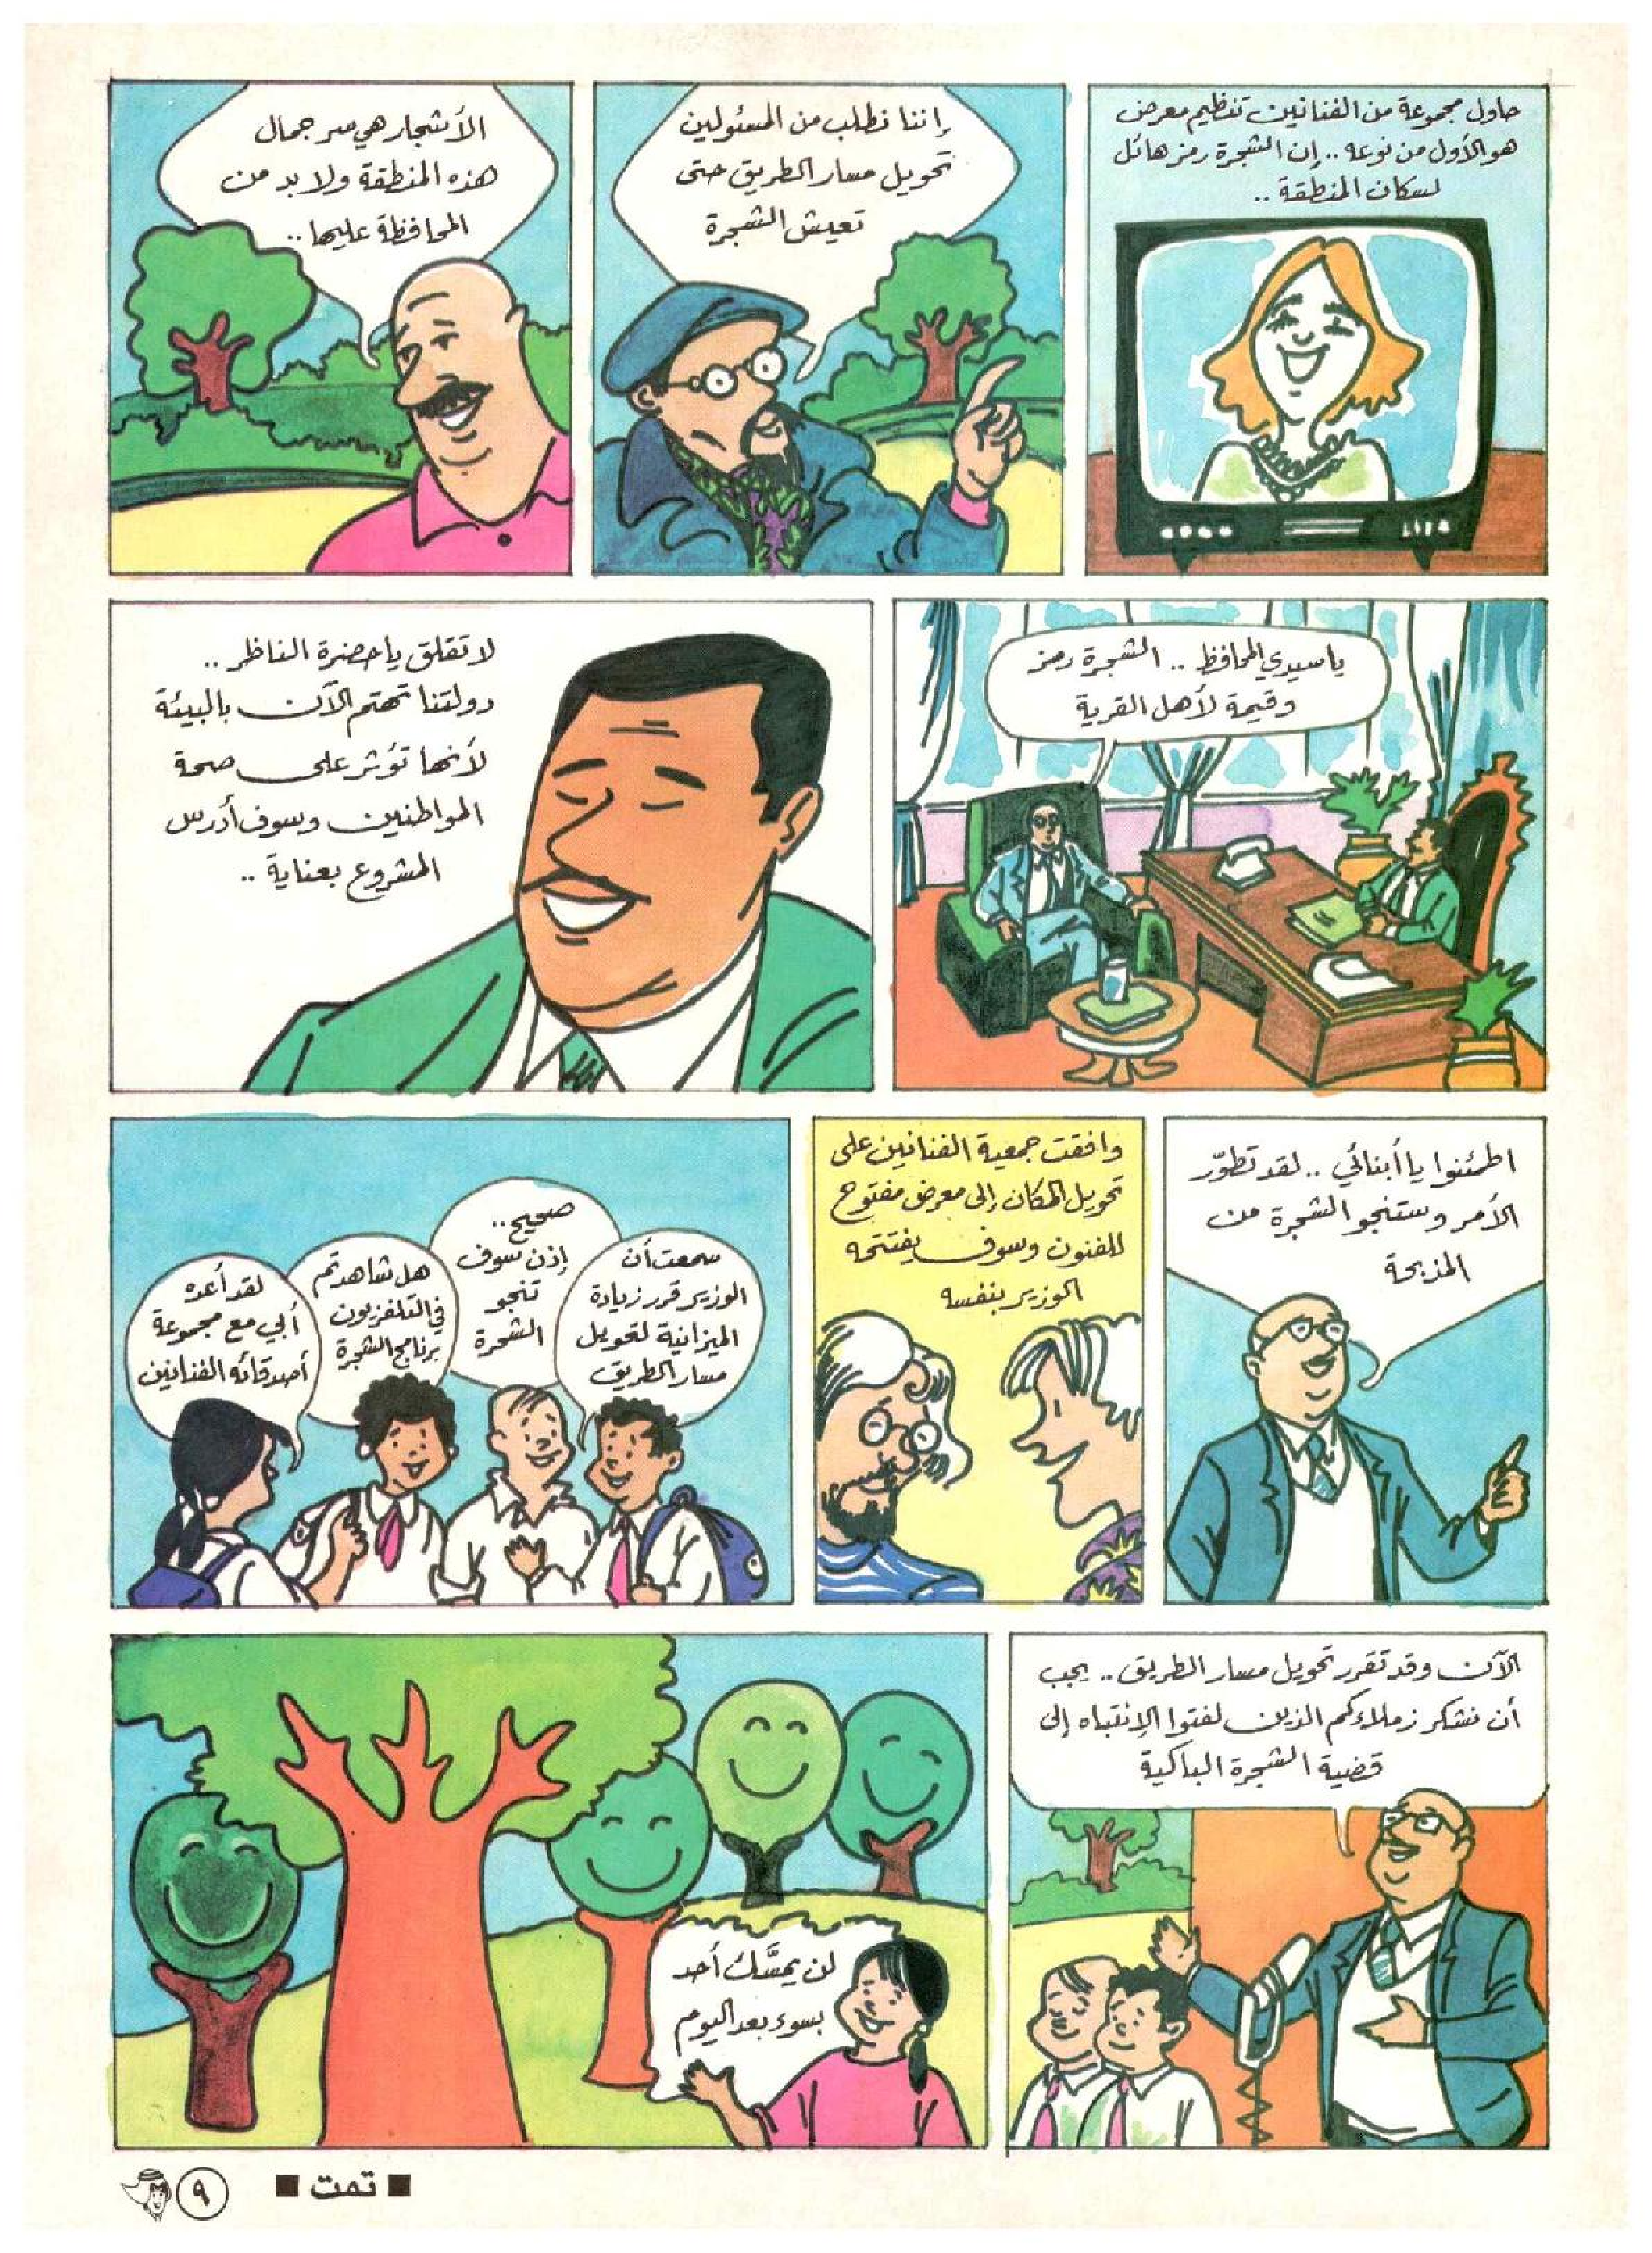 حاول مجموعة من الفنانين تنظيم معرض
هو الأول من نوعه .. إن الشجرة رمز هائل
لسكان المنطقة ..
إننا نطلب من المسئولين
تحويل مسار الطريق حتى
تعيش الشجرة
الأشجار هي سر جمال
هذه المنطقة ولا بد من
المحافظة عليها ..
يا سيدي المحافظ .. الشجرة رمز
وقيمة لأهل القرية
لا تقلق يا حضرة الناظر ..
دولتنا تهتم الآن بالبيئة
لأنها تؤثر على صحة
المواطنين وسوف أدرس
المشروع بعناية ..
اطمئنوا يا أبنائي .. لقد تطوّر
الأمر وستنجو الشجرة من
المذبحة
وافقت جمعية الفنانين على
تحويل المكان إلى معرض مفتوح
للفنون وسوف يفتتحه
الوزير بنفسه
سمعت أن
الوزير قرر زيادة
الميزانية لتحويل
مسار الطريق
صحيح ..
إذن سوف
تنجو
الشجرة
هل شاهدتم
في التلفزيون
برنامج الشجرة
لقد أعده
أبي مع مجموعة
أصدقائه الفنانين
الآن وقد تقرر تحويل مسار الطريق .. يجب
أن نشكر زملاءكم الذين لفتوا الإنتباه إلى
قضية الشجرة الباكية
لن يمسَّك أحد
بسوء بعد اليوم
■ تمت ■
٩